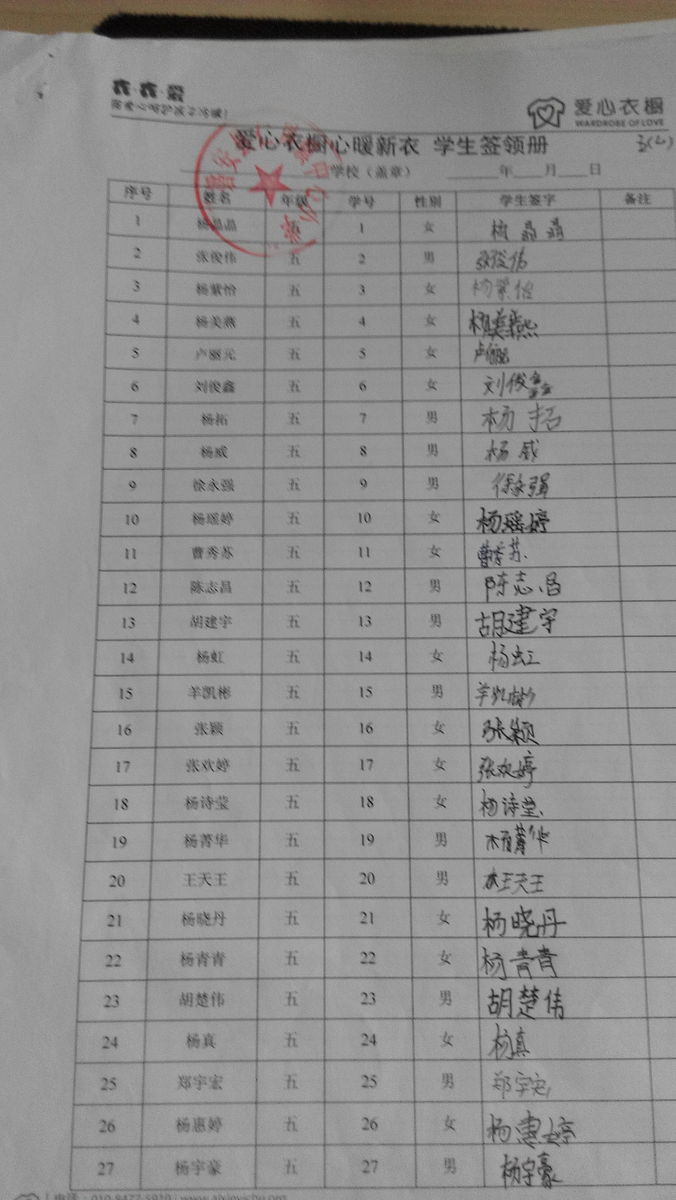 衣·衣·爱
爱心衣橱
WARDROBE OF LOVE
爱心衣橱心暖新衣 学生签领册
学校（盖章） 年 月 日
序号 姓名 年级 学号 性别 学生签字 备注
1 杨晶晶 五 1 女 杨晶晶
2 张俊伟 五 2 男 张俊伟
3 杨紫怡 五 3 女 杨紫怡
4 杨美燕 五 4 女 杨美燕
5 卢丽元 五 5 女
6 刘俊鑫 五 6 女 刘俊鑫
7 杨拓 五 7 男 杨拓
8 杨威 五 8 男 杨威
9 徐永强 五 9 男 徐永强
10 杨瑶婷 五 10 女 杨瑶婷
11 曹秀苏 五 11 女 曹秀苏
12 陈志昌 五 12 男 陈志昌
13 胡建宇 五 13 男 胡建宇
14 杨虹 五 14 女 杨虹
15 羊凯彬 五 15 男 羊凯彬
16 张颖 五 16 女 张颖
17 张欢婷 五 17 女 张欢婷
18 杨诗莹 五 18 女 杨诗莹
19 杨菁华 五 19 男 杨菁华
20 王天王 五 20 男 王天王
21 杨晓丹 五 21 女 杨晓丹
22 杨青青 五 22 女 杨青青
23 胡楚伟 五 23 男 胡楚伟
24 杨真 五 24 女 杨真
25 郑宇宏 五 25 男 郑宇宏
26 杨惠婷 五 26 女 杨惠婷
27 杨宇豪 五 27 男 杨宇豪